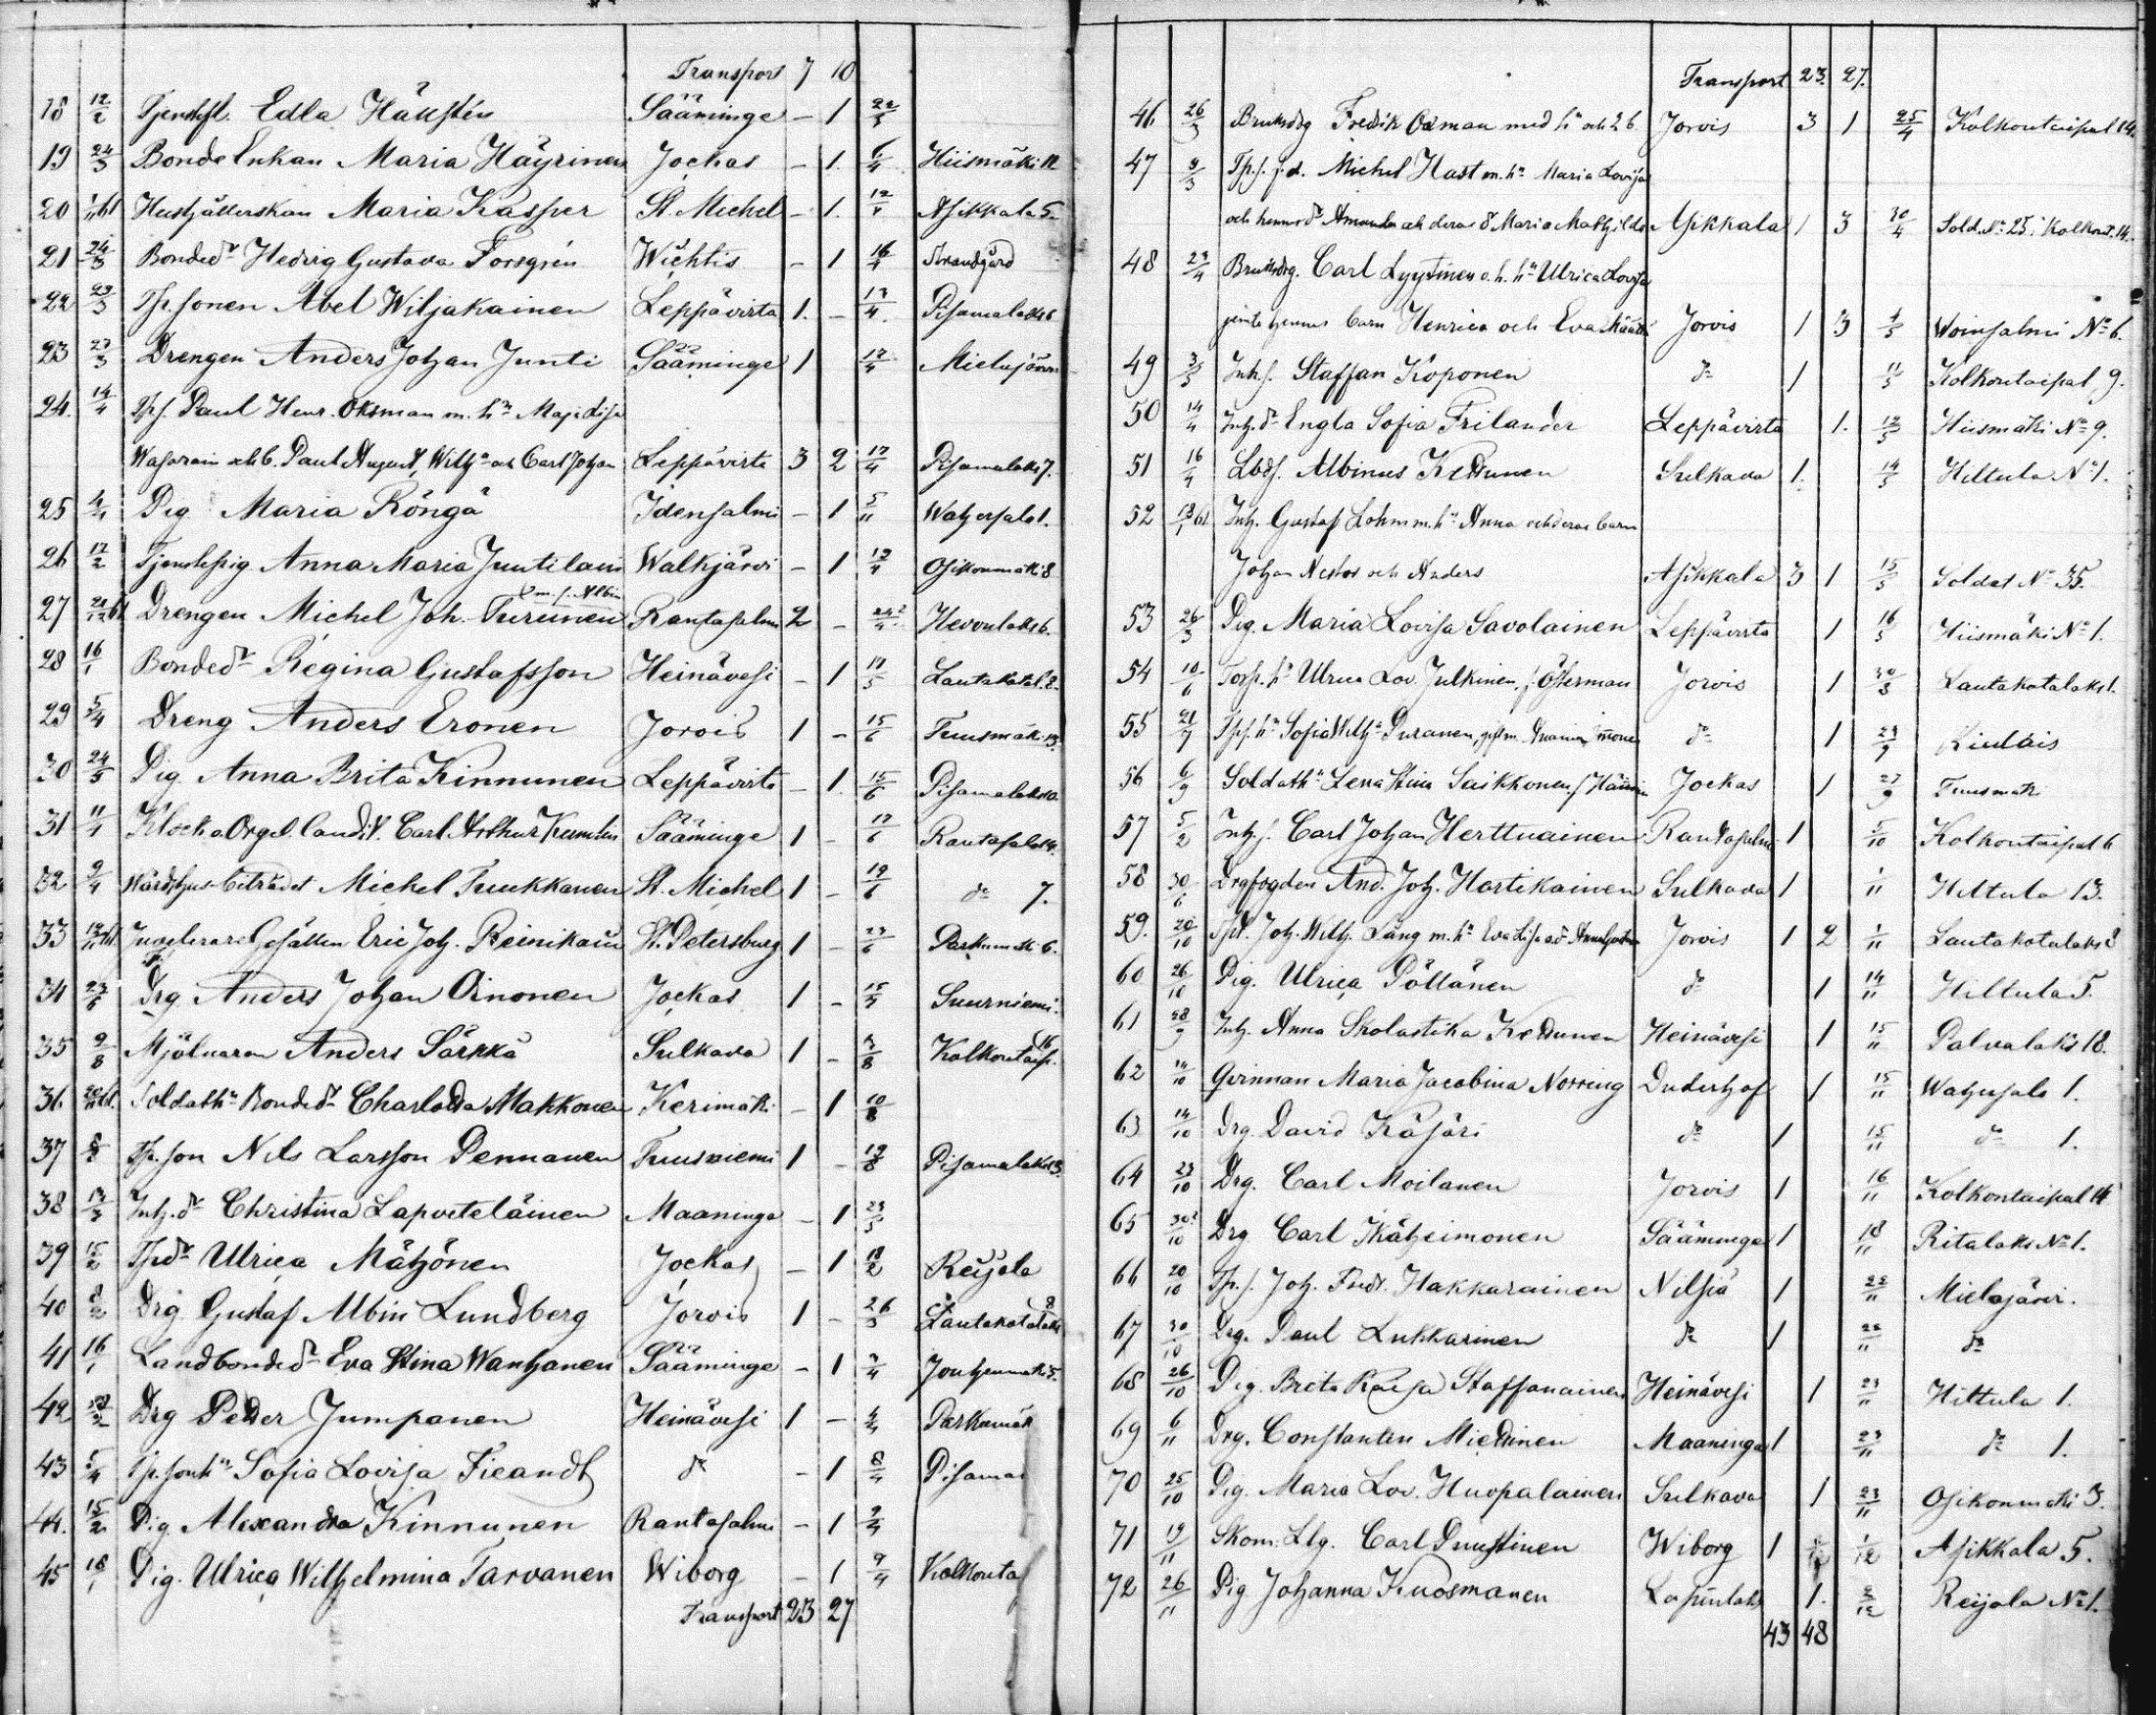 Transport 7 10
18 12/2 Tjenstefl. Edla Hällstén Sääminge – 1 22/3
19 24/3 Bonde Enkan Maria Häyrinen Jockas – 1. 6/4 Hiismäki 12
20 1/11 61 Hustjällerskan Maria Kasper St. Michel – 1. 12/4 Asikkala 5.
21 24/3 Bonded:r Hedvig Gustava Forsgrén Wichtis – 1 16/4 Strandgård
22 29/3 Tp. sonen Abel Wiljakainen Leppävirta 1. – 17/4 Pisamalaks 6
23 27/3 Drengen Anders Johan Junti Sääminge 1 17/4 Mielusjärvi
24. 14/4 Tp.s. Paul Henr. Oksman m. h:u Maja Lisa
Wasarain och b. Paul August, Wilh:a och Carl Johan Leppävirta 3 2 17/4 Pisamalaks 7.
25 4/4 Pig. Maria Rönga Idensalmi – 1 5/11 Watzersalo 1.
26 17/2 Tjenstepig Anna Maria Juutilain Walkjärvi – 1 17/4 Osikonmäki 8
27 21/12 61 Drengen Michel Joh. Turunen m. s. Albin Rantasalmi 2 – 24/4 Hevonlaks 6.
28 16/1 Bonded:r Regina Gustafsson Heinävesi – 1 17/5 Lautakotal. 2.
29 5/4 Dreng Anders Eronen Jorois 1 – 15/6 Tuusmäki 13.
30 24/5 Pig. Anna Brita Kinnunen Leppävirta – 1. 15/6 Pisamalaks 10
31 11/4 Klocka Orgel. Candid. Carl Arthur Kumlin Sääminge 1 – 17/6 Rantasalo 14.
32 9/4 Wärdshus-biträdet Michel Tuukkanen St. Michel 1 – 19/6 d:o 7.
33 12/11 61. Juvelerare Gesällen Eric Joh. Reinikain St. Petersburg 1 – 23/6 Parkumäki 6.
34 27/6 Drg. Anders Johan Oinonen Jockas 1 – 15/7 Suurniemi.
35 9/8 Mjölnaren Anders Särkkä Sulkava 1 – 7/8 Kolkontaip. 16
36. 20/11 61. Soldath:u Bonded:r Charlotta Makkonen Kerimäki – 1 10/8
37 8/8 Tp. son Nils Larsson Pennanen Tuusniemi 1 – 19/8 Pisamalaks 13.
38 13/3 Inh. d:r Christina Lapveteläinen Maaninga – 1 23/3
39 15/2 Tp.d:r Ulrica Mähönen Jockas – 1 18/2 Reijola
40 8/2 Drg. Gustaf Albin Lundberg Jorois 1 – 26/3 Lautakotalaks 8
41 16/1 Landbonded:r Eva Stina Wanhanen Sääminge – 1 3/4 Jouhenmäki 5.
42 Drg Peder Jumpanen Heinävesi 1 – 4/4 Parkumäk
43 5/4 Tp. sonh:u Sofia Lovisa Fieandt d:o – 1 8/4 Pisama
44. 15/2 Pig. Alexandra Kinnunen Rantasalmi – 1 9/4
45 18/1 Pig. Ulrica Wilhelmina Tarvanen Wiborg – 1 9/4 Kolkonta
Transport 23 27
Transport 23. 27.
46 26/3 Bruksdrg Fredrik Oxman med h:u och 2 b. Jorois 3 1 25/4 Kolkontaipal 14.
47 9/3 Tp.s. f.d. Michel Hast m. h:u Maria Lovisa
och hennes d:r Amanda och deras d:r Maria Mathilda Asikkala 1 3 30/4 Sold. N:o 25. Kolkont. 14.
48 23/4 Bruksdrg. Carl Lyytinen o. h. h:u Ulrica Lovisa
jemte hennes barn Henrica och Eva Määttä Jorois 1 3 1/5 Woinsalmi N:o 6.
49 3/5 Inh.s. Staffan Koponen d:o 1 11/5 Kolkontaipal 9.
50 14/4 Inh. d:r Engla Sofia Frilander Leppävirta 1. 12/5 Hiismäki N:o 9.
51 16/4 Lbds. Albinus Kettunen Sulkava 1. 14/5 Hiltula N:o 1.
52 13/1 61 Inh. Gustaf Lohm m. h:u Anna och deras barn
Johan Nestor och Anders Asikkala 3 1 15/5 Soldat N:o 35.
53 26/3 Pig. Maria Lovisa Savolainen Leppävirta 1 16/5 Hiismäki N:o 1.
54 10/6 Torp. h:u Ulrica Lov. Julkinen, f. Österman Jorois 1 30/8 Lautakotalaks 1.
55 21/7 Tp.s. h:u Sofia Wilh:a Puranen, gift m. d:o 1 23/9 Kiulais
56 6/9 Soldath:u Lena Stina Saikkonen f. Jockas 1 27/9 Tuusmäki
57 5/2 Inh.s. Carl Johan Herttuainen Rantasalmi 1 5/10 Kolkontaipal 6
58 30/6 Drgfogden And. Joh. Hartikainen Sulkava 1 1/11 Hiltula 13.
59. 20/10 Joh. Wilh. Lång m. h:u Eva Lisa o. d:r Jorois 1 2 1/11 Lautakotalaks 8
60 26/10 Pig. Ulrica Pöllänen d:o 1 14/11 Hiltula 5.
61 28/9 Inh. Anna Skolastika Kettunen Heinävesi 1 15/11 Palvalaks 18.
62 14/10 Qvinnan Maria Jacobina Norring Duderhof 1 15/11 Watzersalo 1.
63 14/10 Drg. David Käjäri d:o 1 15/11 d:o 1.
64 23/10 Drg. Carl Moilanen Jorois 1 16/11 Kolkontaipal 14
65 30/10 Drg Carl Kätzeimonen Sääminge 1 18/11 Ritalaks N:o 1.
66 20/10 Tp.s. Joh. Fredr. Hakkarainen Nilsiä 1 22/11 Mielojärvi.
67 30/10 Drg. Paul Lukkarinen d:o 1 22/11 d:o
68 26/10 Pig. Brita Kaisa Staffanainen Heinävesi 1 23/11 Hiltula 1.
69 6/11 Drg. Constantin Miettinen Maaninga 1 23/11 d:o 1.
70 25/10 Pig. Maria Lov. Huopalainen Sulkava 1 23/11 Osikonmäki 3.
71 19/11 Skom. Llg. Carl Puustinen Wiborg 1 1/12 Asikkala 5.
72 26/11 Pig Johanna Kuosmanen Lapinlaks 1. 2/12 Reijola N:o 1.
43 48